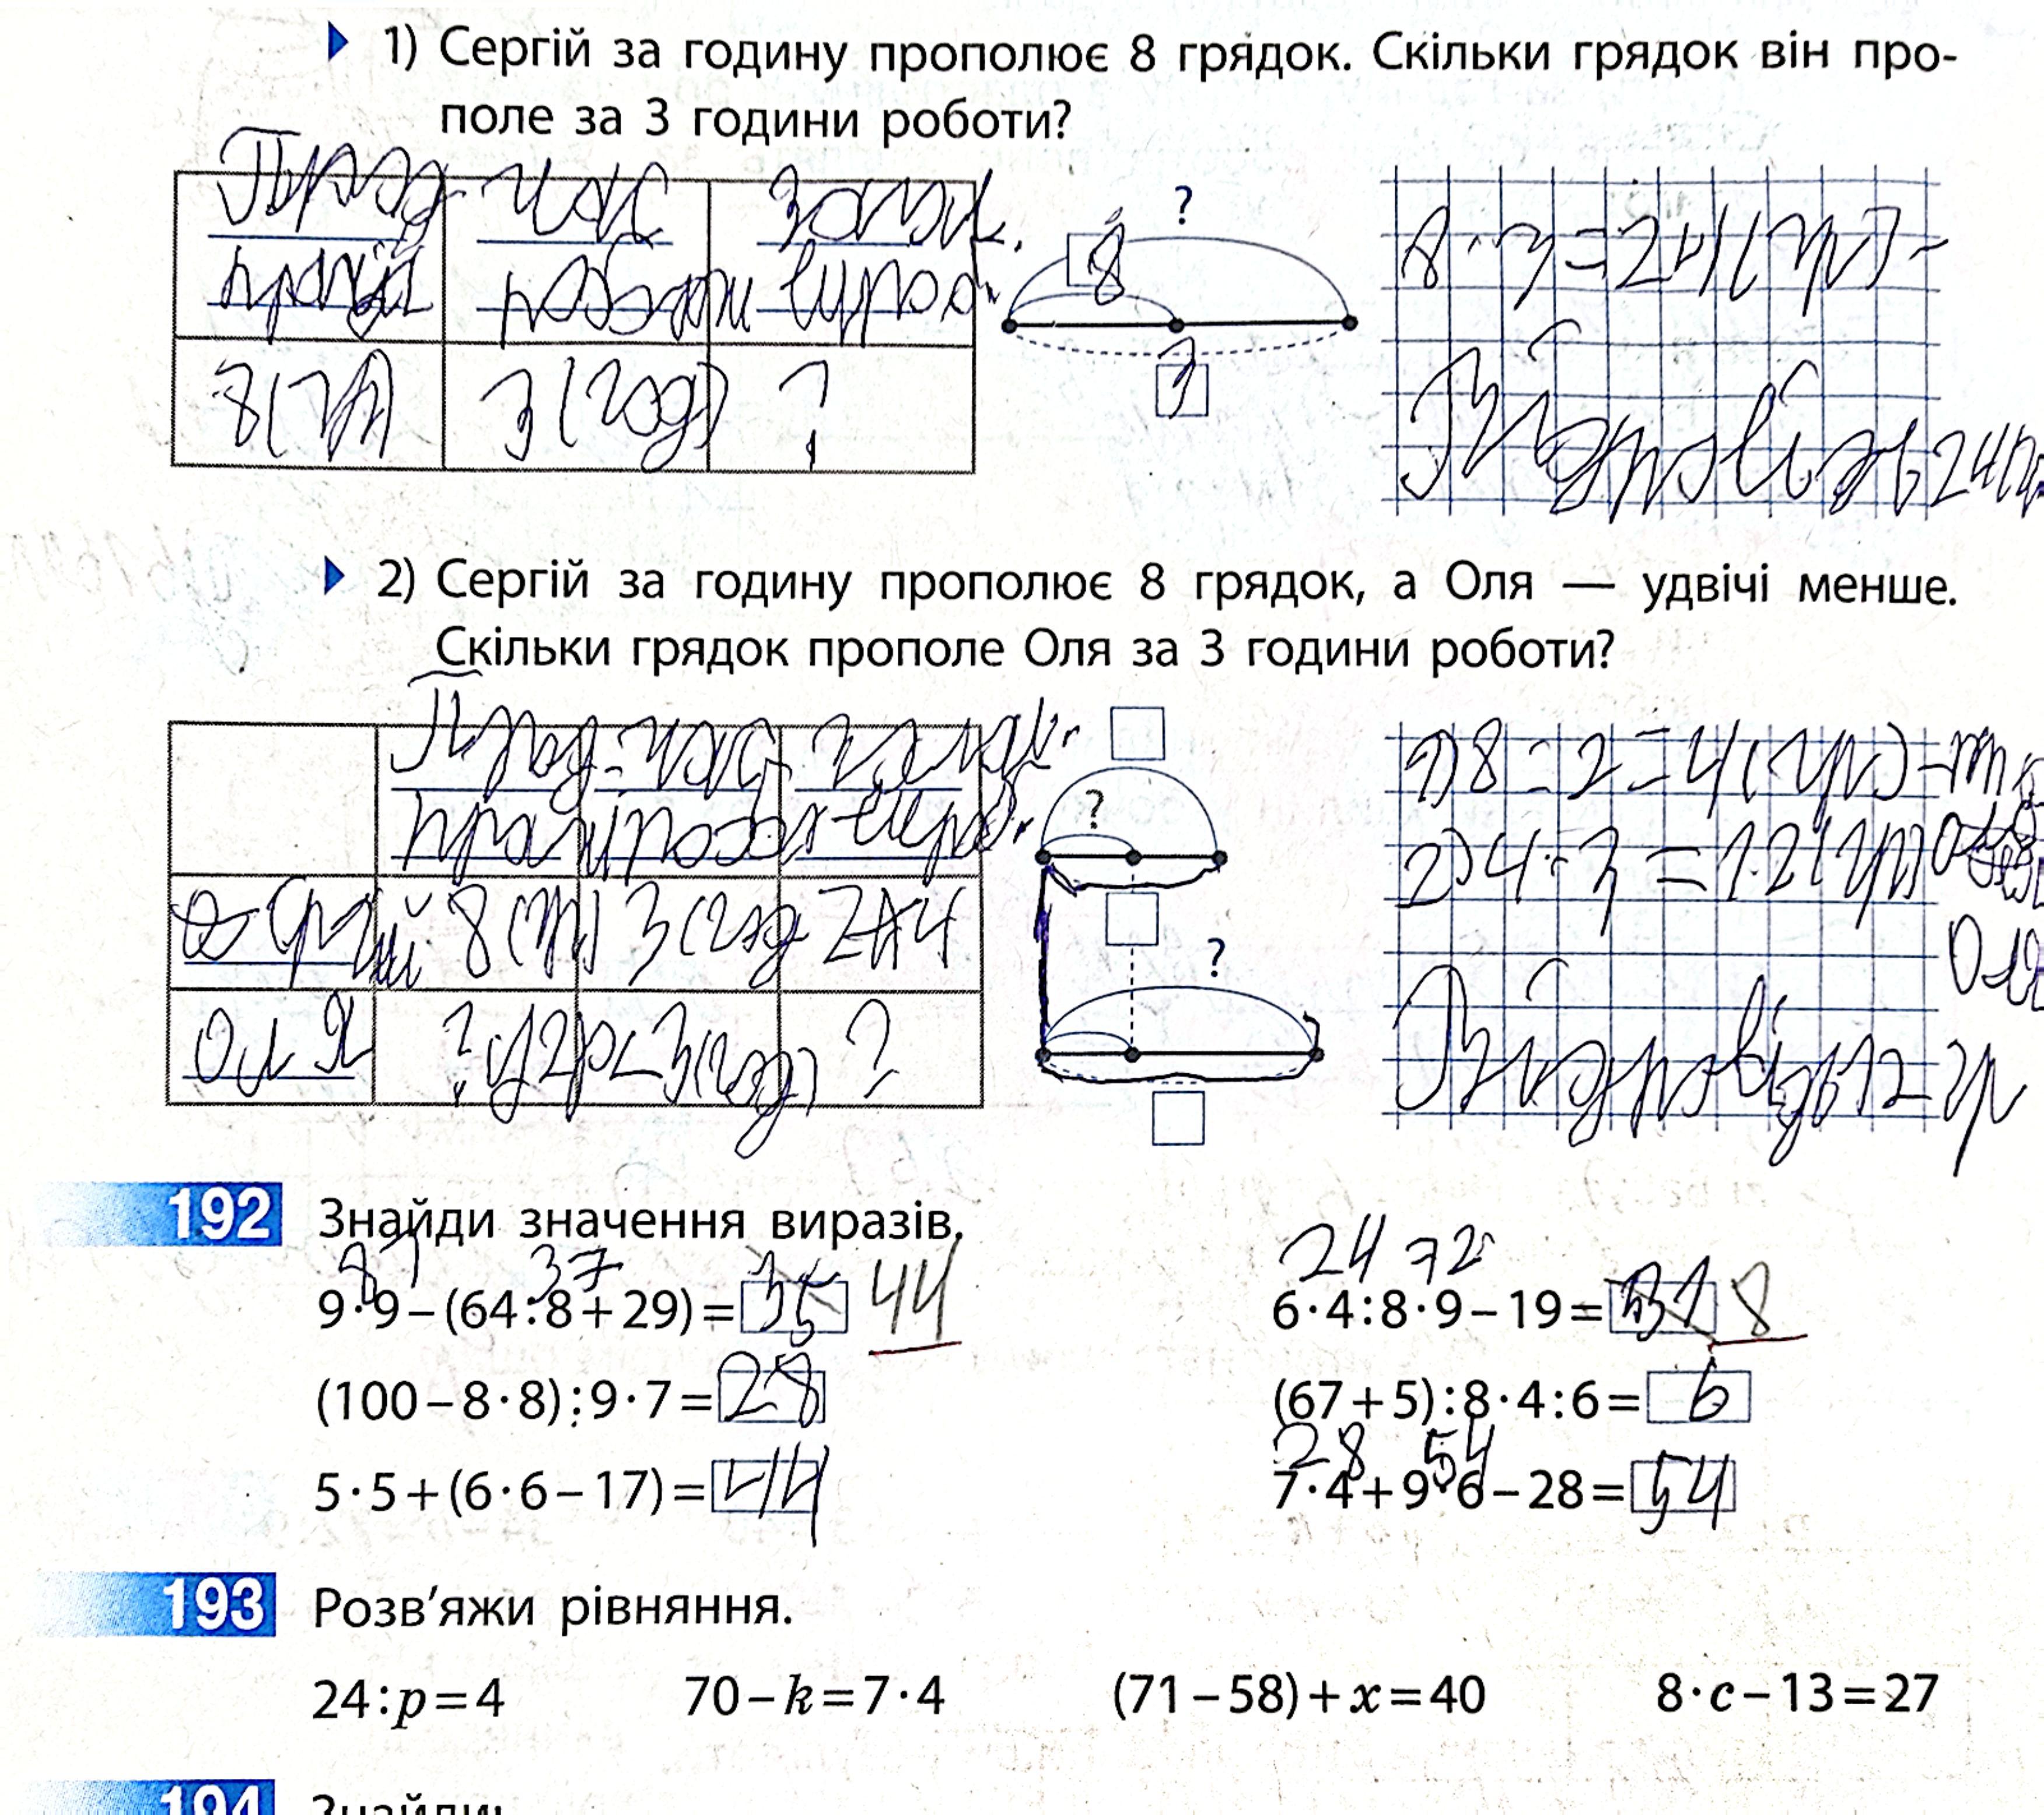 1) Сергій за годину прополює 8 грядок. Скільки грядок він про-
поле за 3 години роботи?
Прод. час загальн.
праці роботи вироб.
8(гр) 3(год) ?
?
8
3
8·3=24(гр)-
Відповідь 24
2) Сергій за годину прополює 8 грядок, а Оля — удвічі менше.
Скільки грядок прополе Оля за 3 години роботи?
Прод. час
праці
8(гр) 3(год)
Оля ? 3(год) ?
?
?
1) 8:2=4(гр)-
2) 4·3=12(гр)
Оля
Відповідь 12 гр
192 Знайди значення виразів.
81 37
9·9–(64:8+29)=35 44
(100–8·8):9·7=28
5·5+(6·6–17)=44
24 72
6·4:8·9–19=31 8
(67+5):8·4:6=6
28 54
7·4+9·6–28=54
193 Розв’яжи рівняння.
24:p=4 70–k=7·4 (71–58)+x=40 8·c–13=27
194 Знайди: